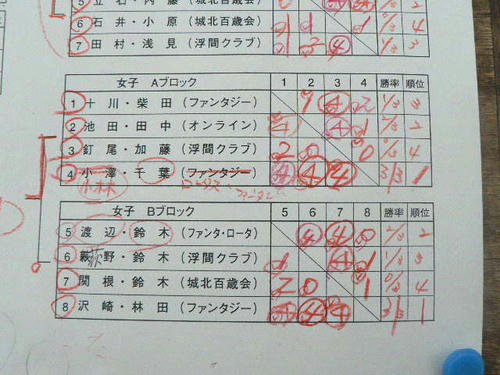 5 立石・内藤（城北百歳会）
6 石井・小原（城北百歳会） 1 1 4
7 田村・浅見（浮間クラブ） 2 2 ④ 3
女子 Aブロック 1 2 3 4 勝率 順位
1 十川・柴田（ファンタジー） ④ 2 1/3 3
2 池田・田中（オンライン） ④ ④ 1 2/3 2
3 釘尾・加藤（浮間クラブ） 2 0 0 0/3 4
4 小澤・千葉（ファンタジー） ④ ④ ④ 3/3 1
小林
女子 Bブロック 5 6 7 8 勝率 順位
5 渡辺・鈴木（ファンタ・ロータ） ④ ④ 0 2/3 2
6 萩野・鈴木（浮間クラブ） 1 ④ 1 1/3 3
7 関根・鈴木（城北百歳会） 2 0 1 0/3 4
8 沢崎・林田（ファンタジー） ④ ④ ④ 3/3 1